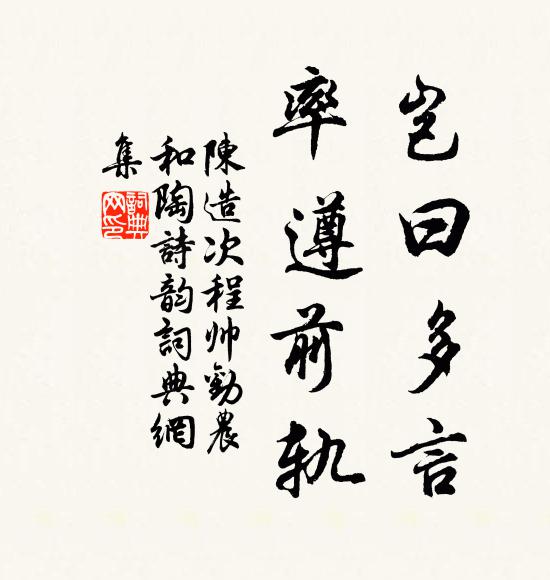 岂曰多言
率遵前軌
陳造次程帅勸農
和陶詩韵詞典網
集
詞典
网印